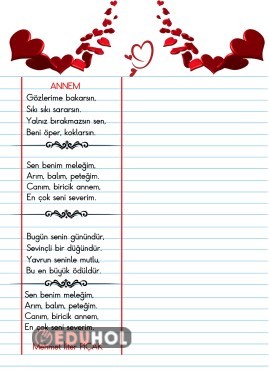 ANNEM
Gözlerime bakarsın,
Sıkı sıkı sararsın.
Yalnız bırakmazsın sen,
Beni öper, koklarsın.
Sen benim meleğim,
Arım, balım, peteğim.
Canım, biricik annem,
En çok seni severim.
Bugün senin günündür,
Sevinçli bir düğündür.
Yavrun seninle mutlu,
Bu en büyük ödüldür.
Sen benim meleğim,
Arım, balım, peteğim.
Canım, biricik annem,
En çok seni severim.
EDUHOL
Mehmet İlter PIÇAK